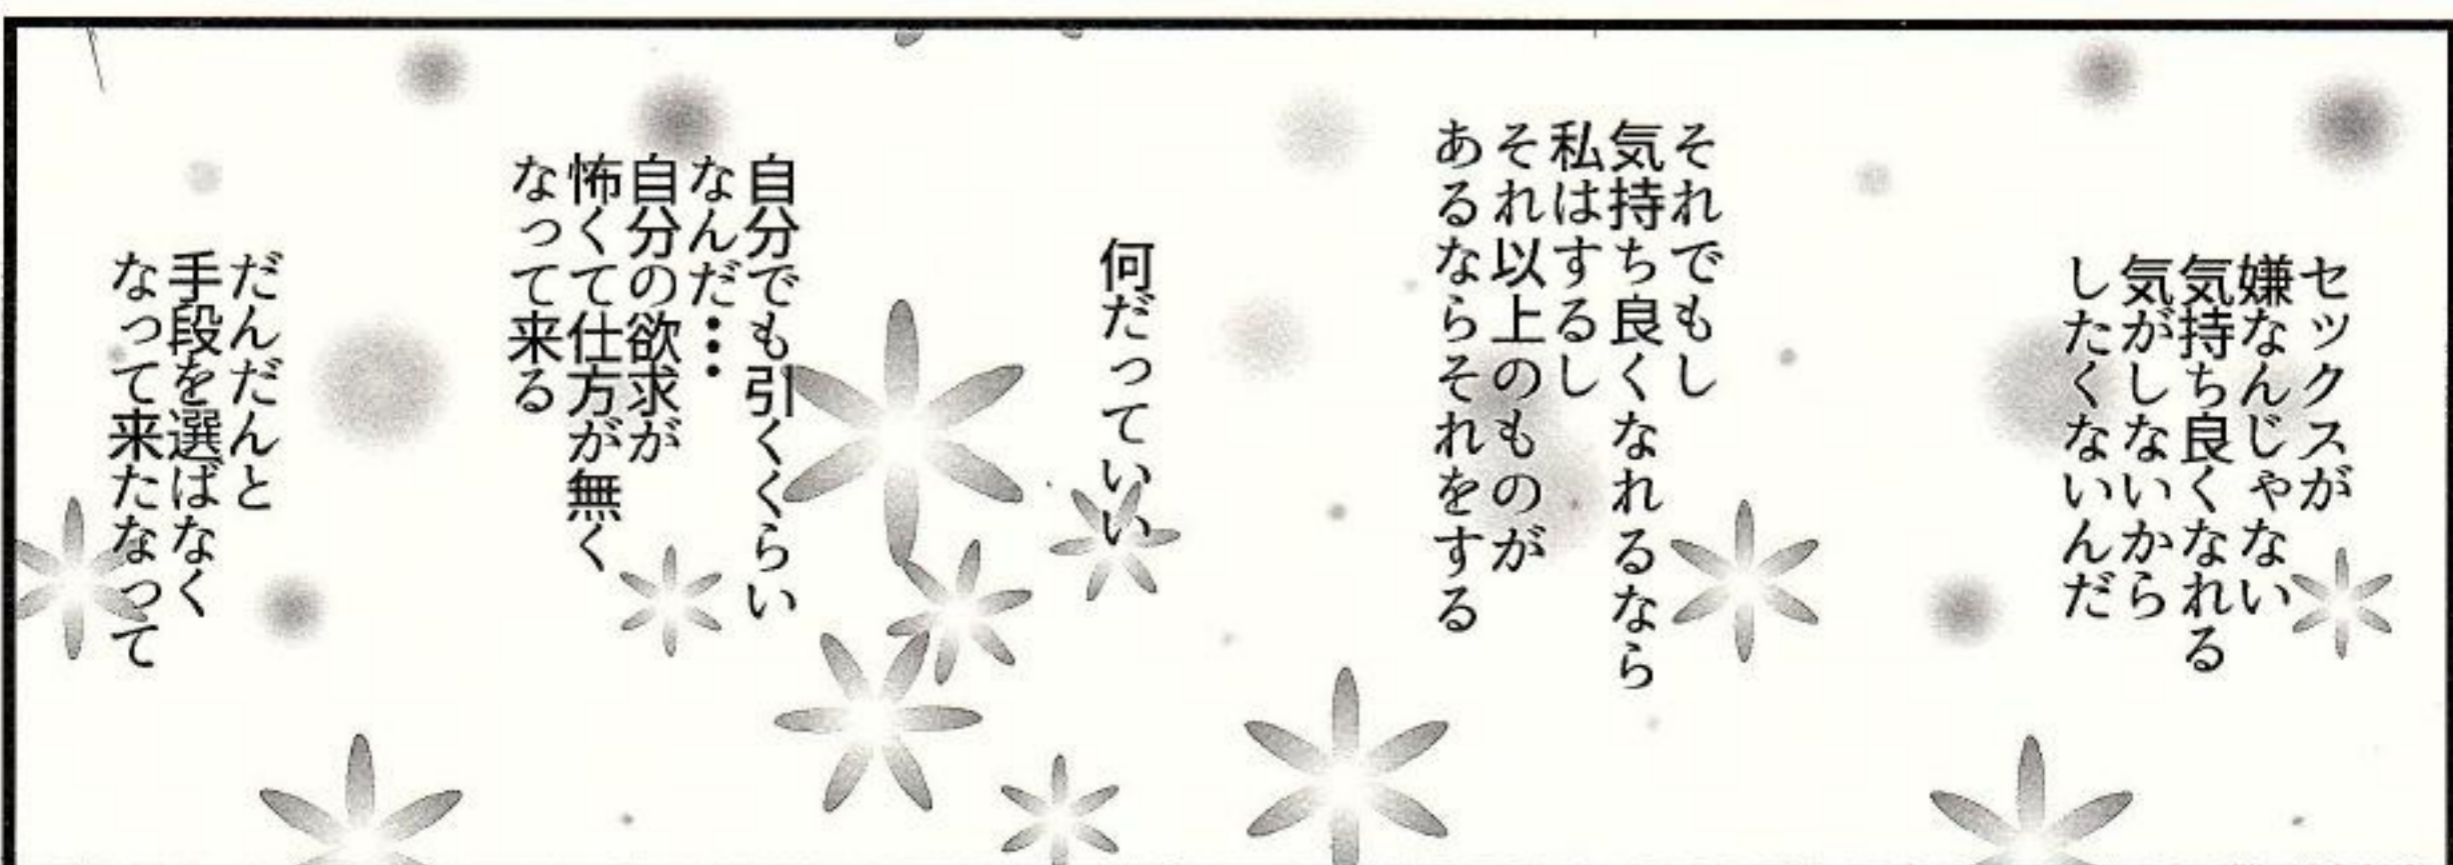 セックスが
嫌なんじゃない
気持ち良くなれる
気がしないから
したくないんだ
それでもし
気持ち良くなれるなら
私はするし
それ以上のものが
あるならそれをする
何だっていい
自分でも引くくらい
なんだ…
自分の欲求が
怖くて仕方が無く
なって来る
だんだんと
手段を選ばなく
なって来たなって